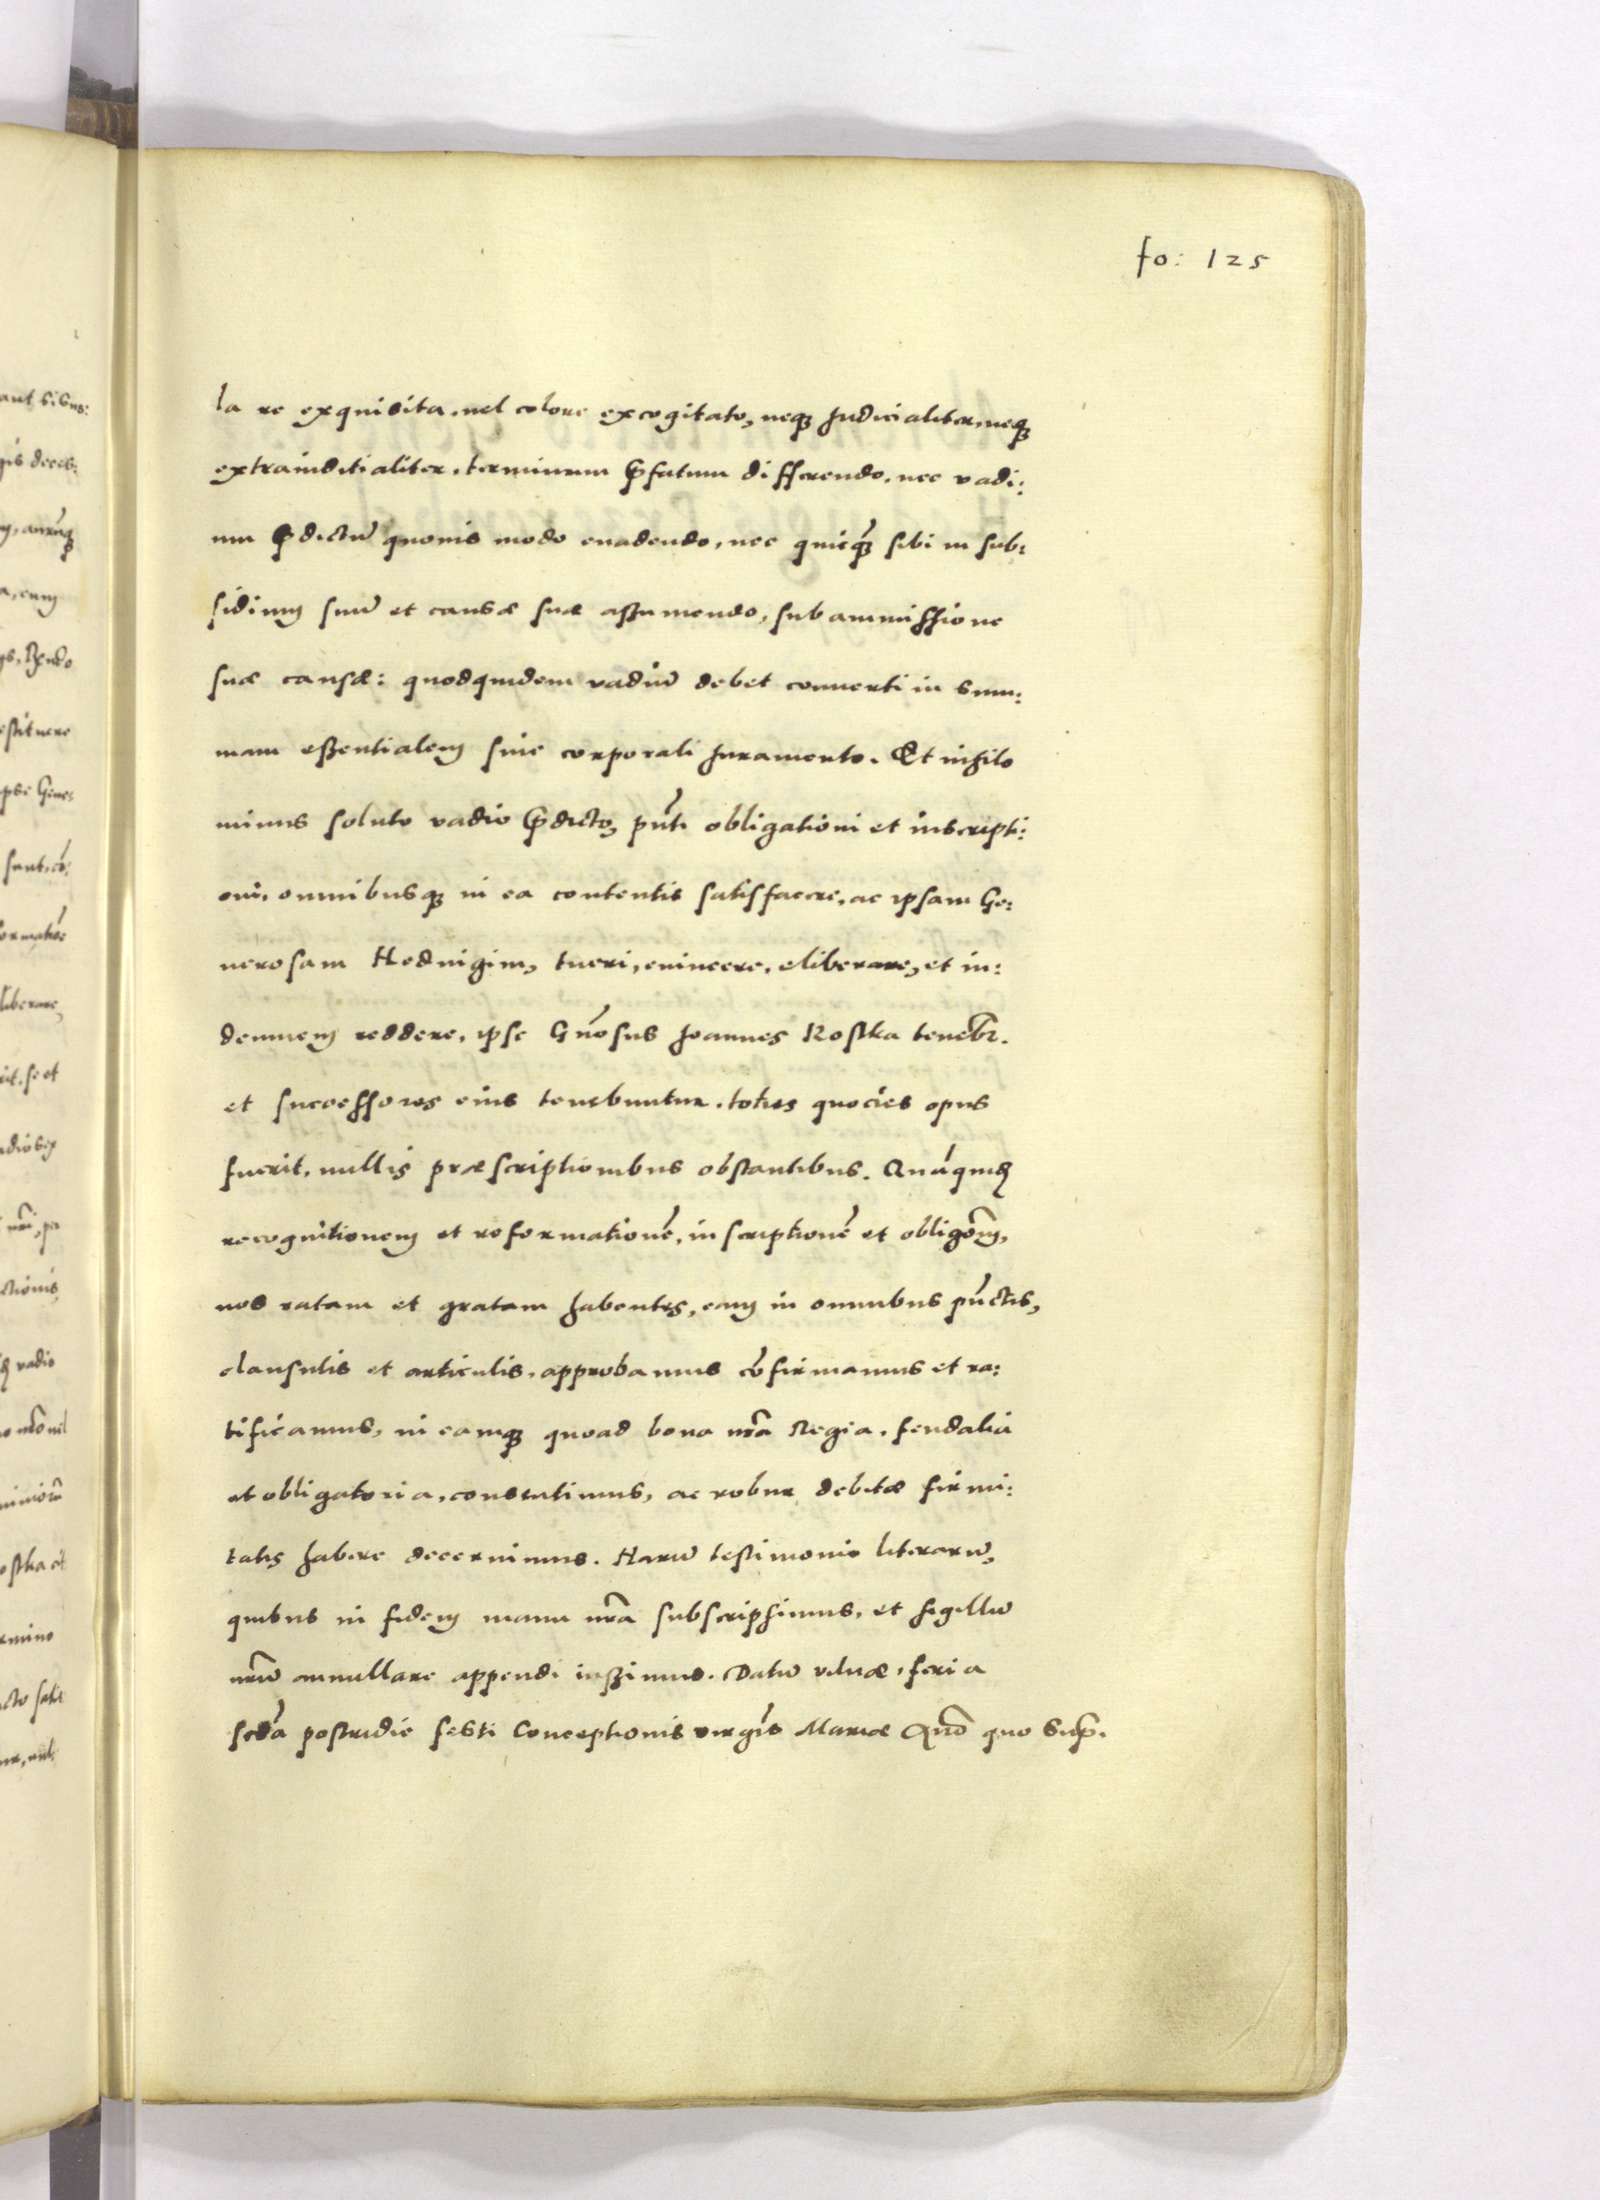 fo: 125
la re exquisita, uel colore excogitato, neq; Iudicialiter, neq;
extraiuditialiter, terminum p̄fatum differendo, nec vadi:
um p̄dictū quouis modo euadendo, nec quicq̃ sibi in sub:
sidium suū et causæ suæ assumendo, sub ammissione
suæ causæ: quodquidem vadiū debet conuerti in sum:
mam essentialem siue corporali Iuramento. Et nihilo
minus soluto vadio p̄dicto, pñti obligationi et inscripti:
oni, omnibusq; in ea contentis satisfacere, ac ipsam Ge:
nerosam Heduigim, tueri, euincere, eliberare, et in:
demnem reddere, ipse Gñosus Ioannes Kostka tenebr̃.
et successores eius tenebuntur, toties quocies opus
fuerit, nullis præscriptionibus obstantibus. Quāquidē
recognitionem et reformationē, inscriptionē et obligōem,
nos ratam et gratam habentes, eam in omnibus pūctis,
clausulis et articulis, approbamus cōfirmamus et ra:
tificamus, in eamq; quoad bona nr̃a Regia, feudalia
et obligatoria, consentimus, ac robur debitæ firmi:
tatis habere decernimus. Harū testimonio literarū,
quibus in fidem manu nr̃a subscripsimus, et sigillū
nr̃ū annullare appendi iussimus. Datū vilnæ, feria
scd̃a postridie festi Conceptionis virgīs Mariæ Añō quo Sup̃.